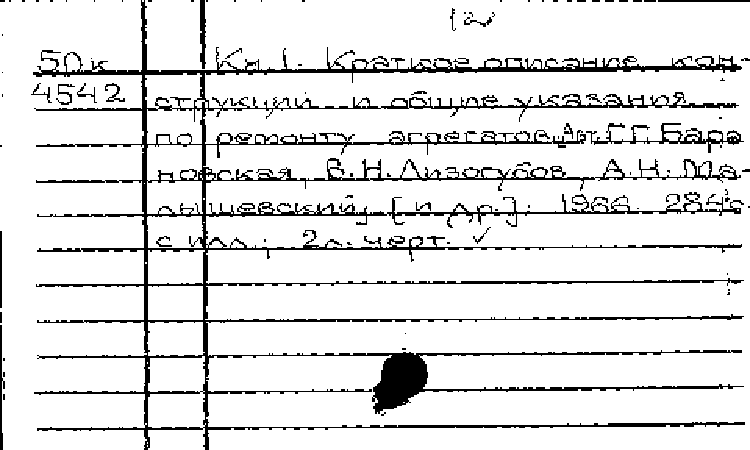 (2)
50к Кн.1. Краткое описание кон-
4542 струкций и общие указания
по ремонту агрегатов. Г.Г. Бара
новская, В.Н. Лизогубов, А.Н. Ма-
лышевский, [и др.]. 1966. 284 с.
с илл.; 2 л. черт. ✓